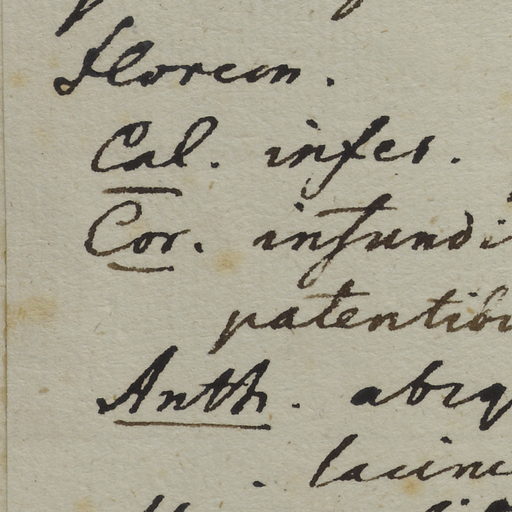 florem.
Cal. infer.
Cor. infundi
patentibu
Anth. absq
lacin